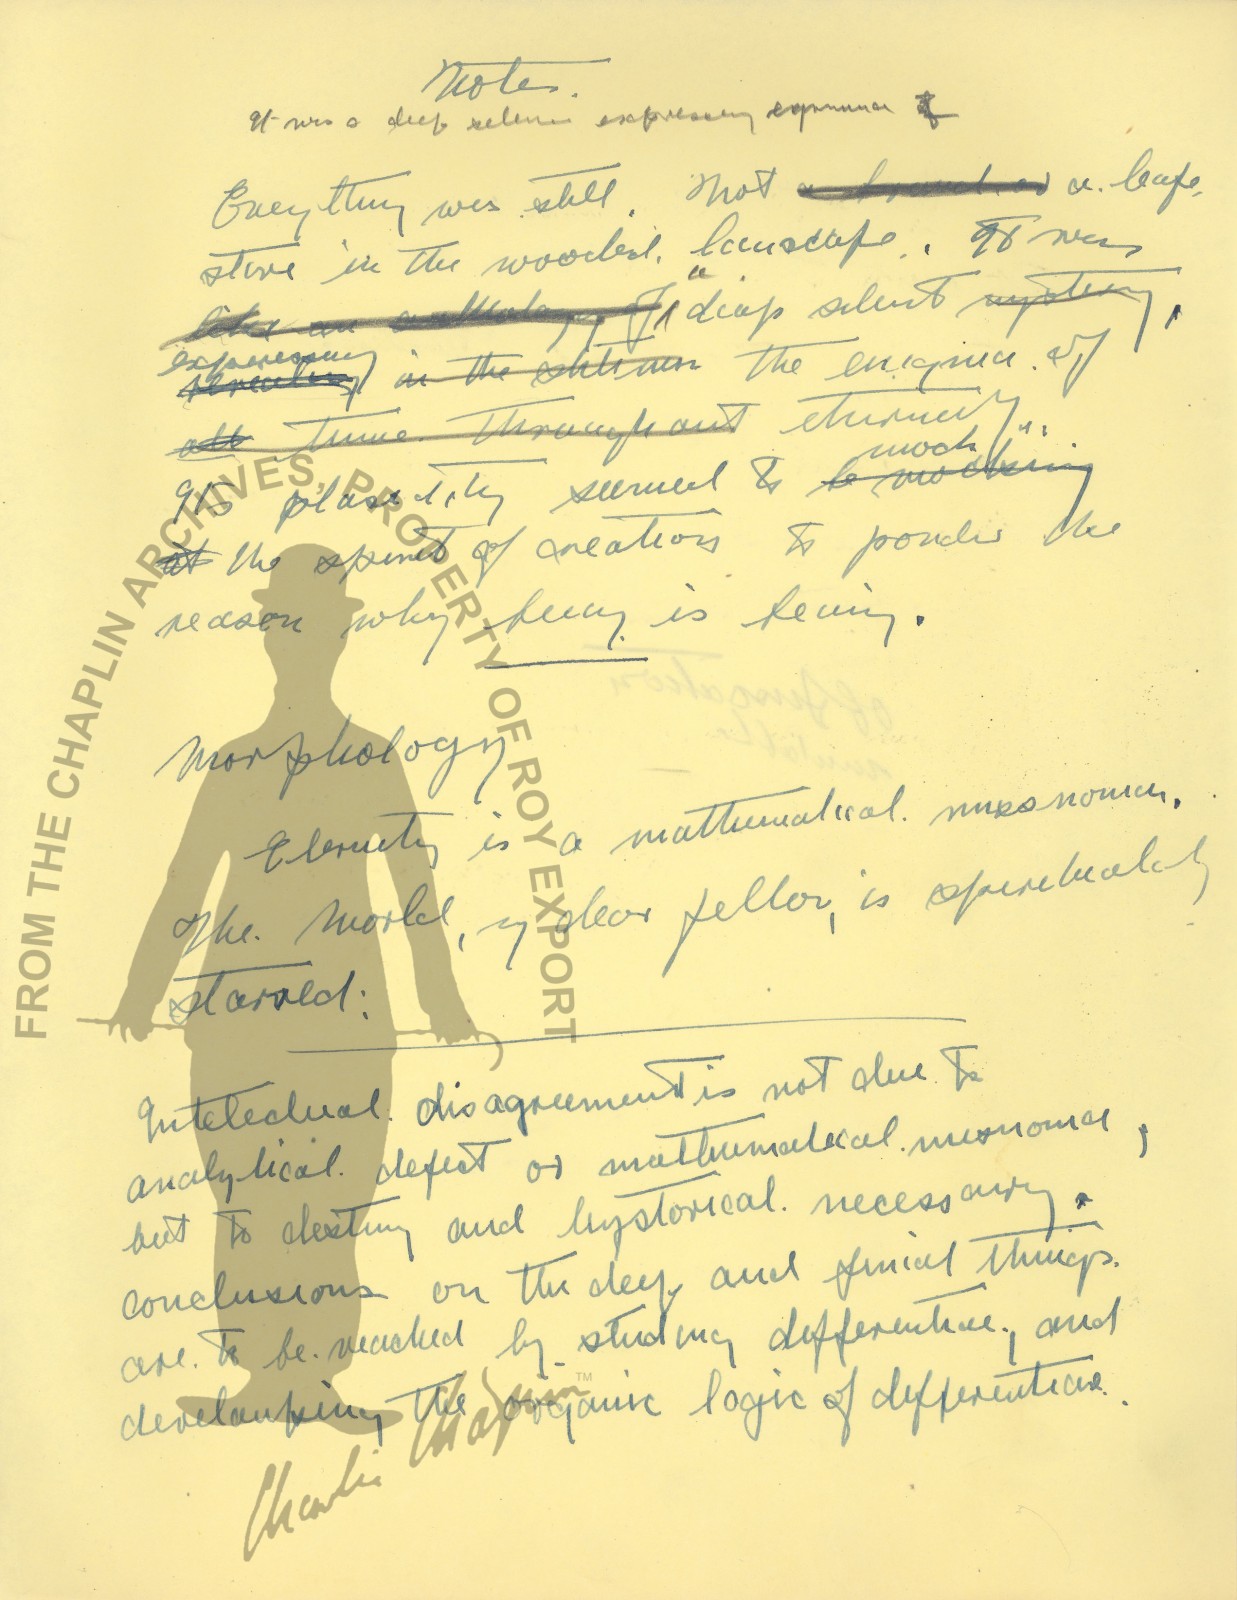 Notes.
It was a deep silence expressing
Everything was still. Not a branch or a leafe
stire in the wooded lanscape. It was
like an of a deap silent mystery,
expressing
revealing in the stillness the enigma of
all time throughout eternity.
mock
Its plasitity seemed to be mocking
at the spirit of creation to ponder the
reason why being is being.
Morphology
Eternity is a mathematical misnomer.
The World, my dear fellow, is spiritualaly
starved:
Intelectual disagreement is not due to
analytical defect or mathematical misnomer,
but to destiny and hystorical necessairy.
conclusions on the deep and finial things.
are to be reached by studing differentiae, and
developping the organic logic of differentiae.
FROM THE CHAPLIN ARCHIVES, PROPERTY OF ROY EXPORT
Charlie Chaplin™